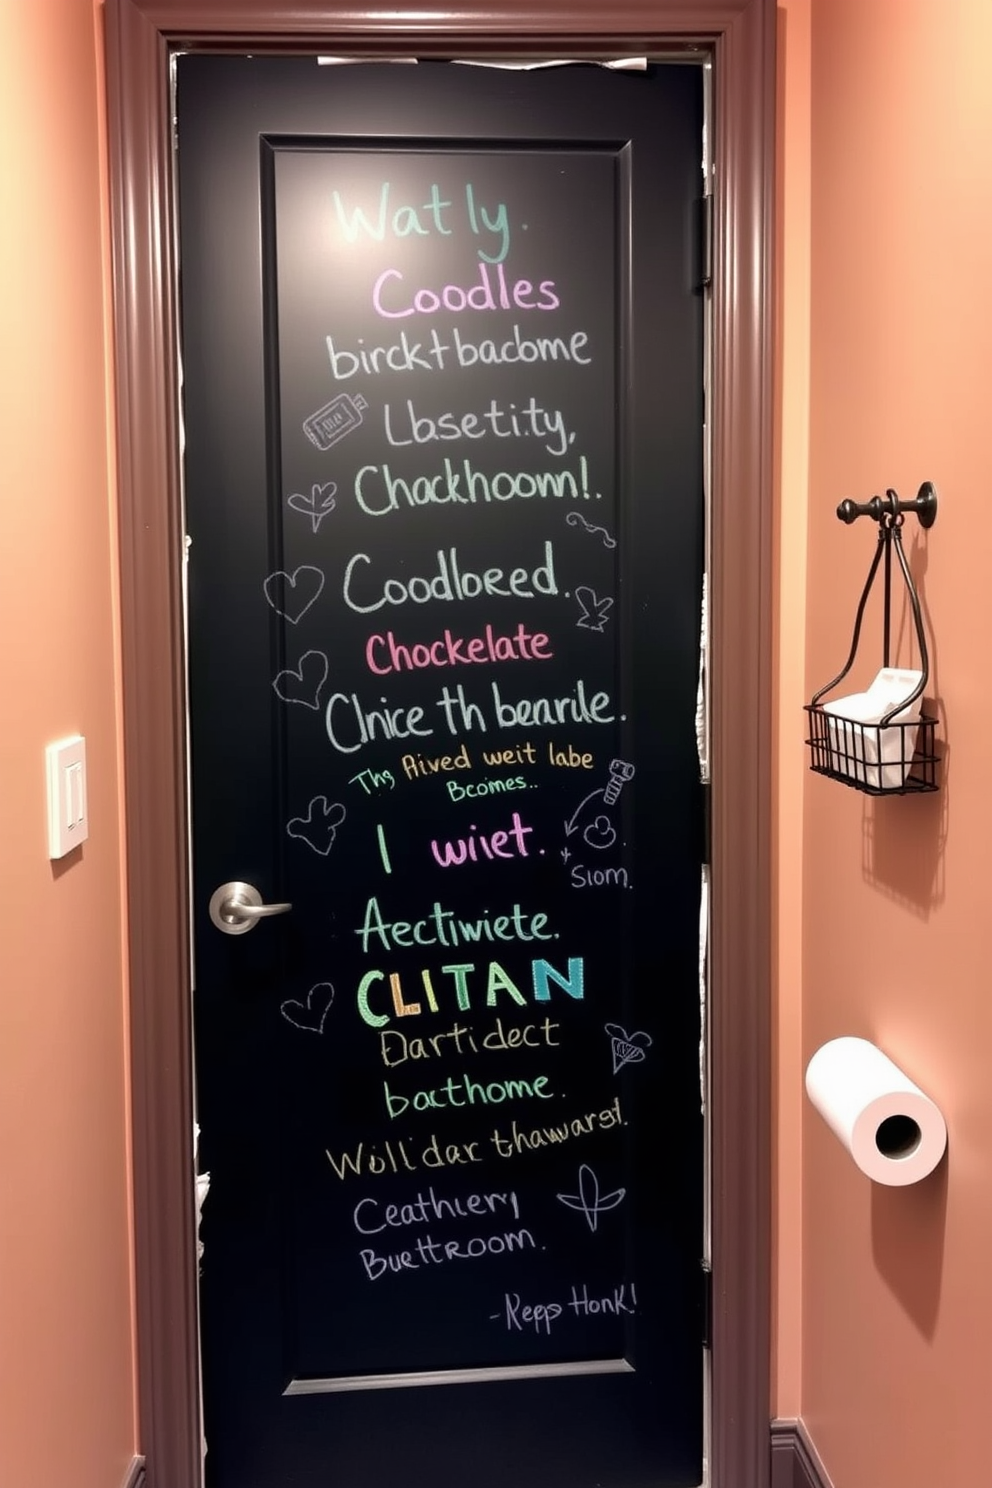 Watly.
Coodles
birckt bacbome
Lbsetity,
Chackhoomn!.
Coodloeed.
Chockelate
Clnice th benarile.
Ths Rived weit labe
Bcomes..
I wiiet.
Siom.
Aectiwiete.
CLITAN
Dartidect
bacthome.
Woll dar thawarst.
Ceathiery
Buettroom.
-Keep Honk!